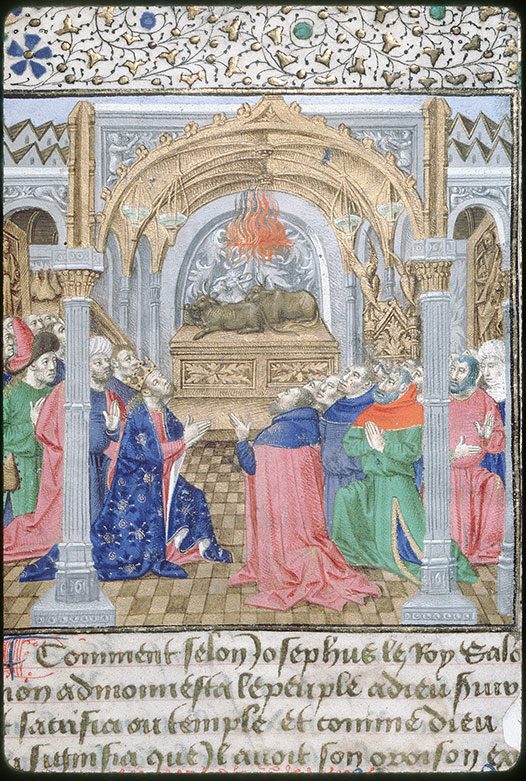 Comment selon Josephus le Roy Salo
mon admonnesta le peuple a dieu
t sacrifia ou temple et comme dieu
signifia que il avoit son oroison ex